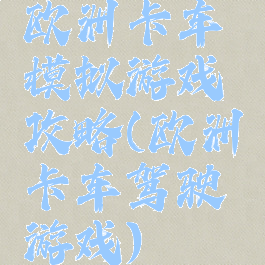 欧洲卡车
模拟游戏
攻略(欧洲
卡车驾驶
游戏)